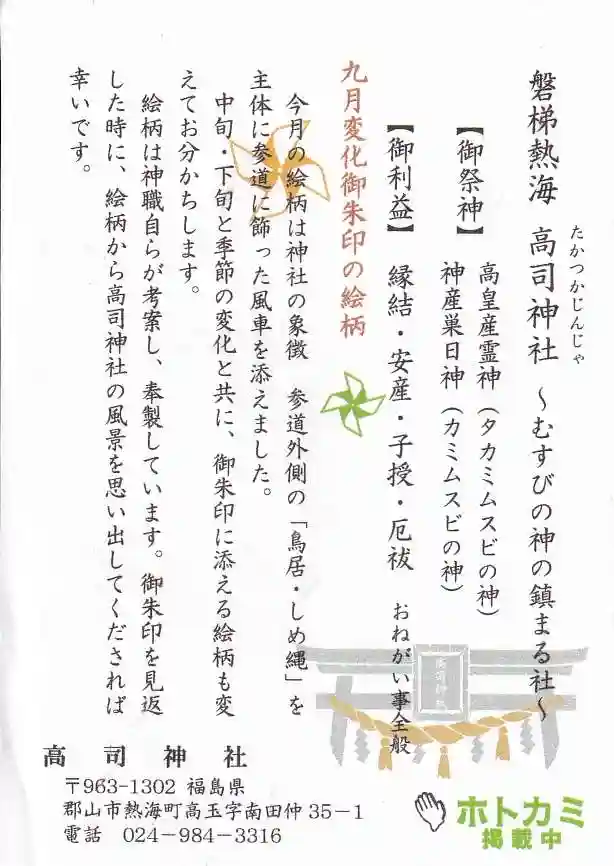 たかつかじんじゃ
磐梯熱海 高司神社 ～むすびの神の鎮まる社～
【御祭神】 高皇産霊神（タカミムスビの神）
神産巣日神（カミムスビの神）
【御利益】 縁結・安産・子授・厄祓 おねがい事全般
九月変化御朱印の絵柄
今月の絵柄は神社の象徴 参道外側の「鳥居・しめ縄」を
主体に参道に飾った風車を添えました。
中旬・下旬と季節の変化と共に、御朱印に添える絵柄も変
えてお分かちします。
絵柄は神職自らが考案し、奉製しています。御朱印を見返
した時に、絵柄から高司神社の風景を思い出してくだされば
幸いです。
高司神社
高司神社
〒963-1302 福島県
郡山市熱海町高玉字南田仲35－1
電話 024－984－3316
ホトカミ
掲載中